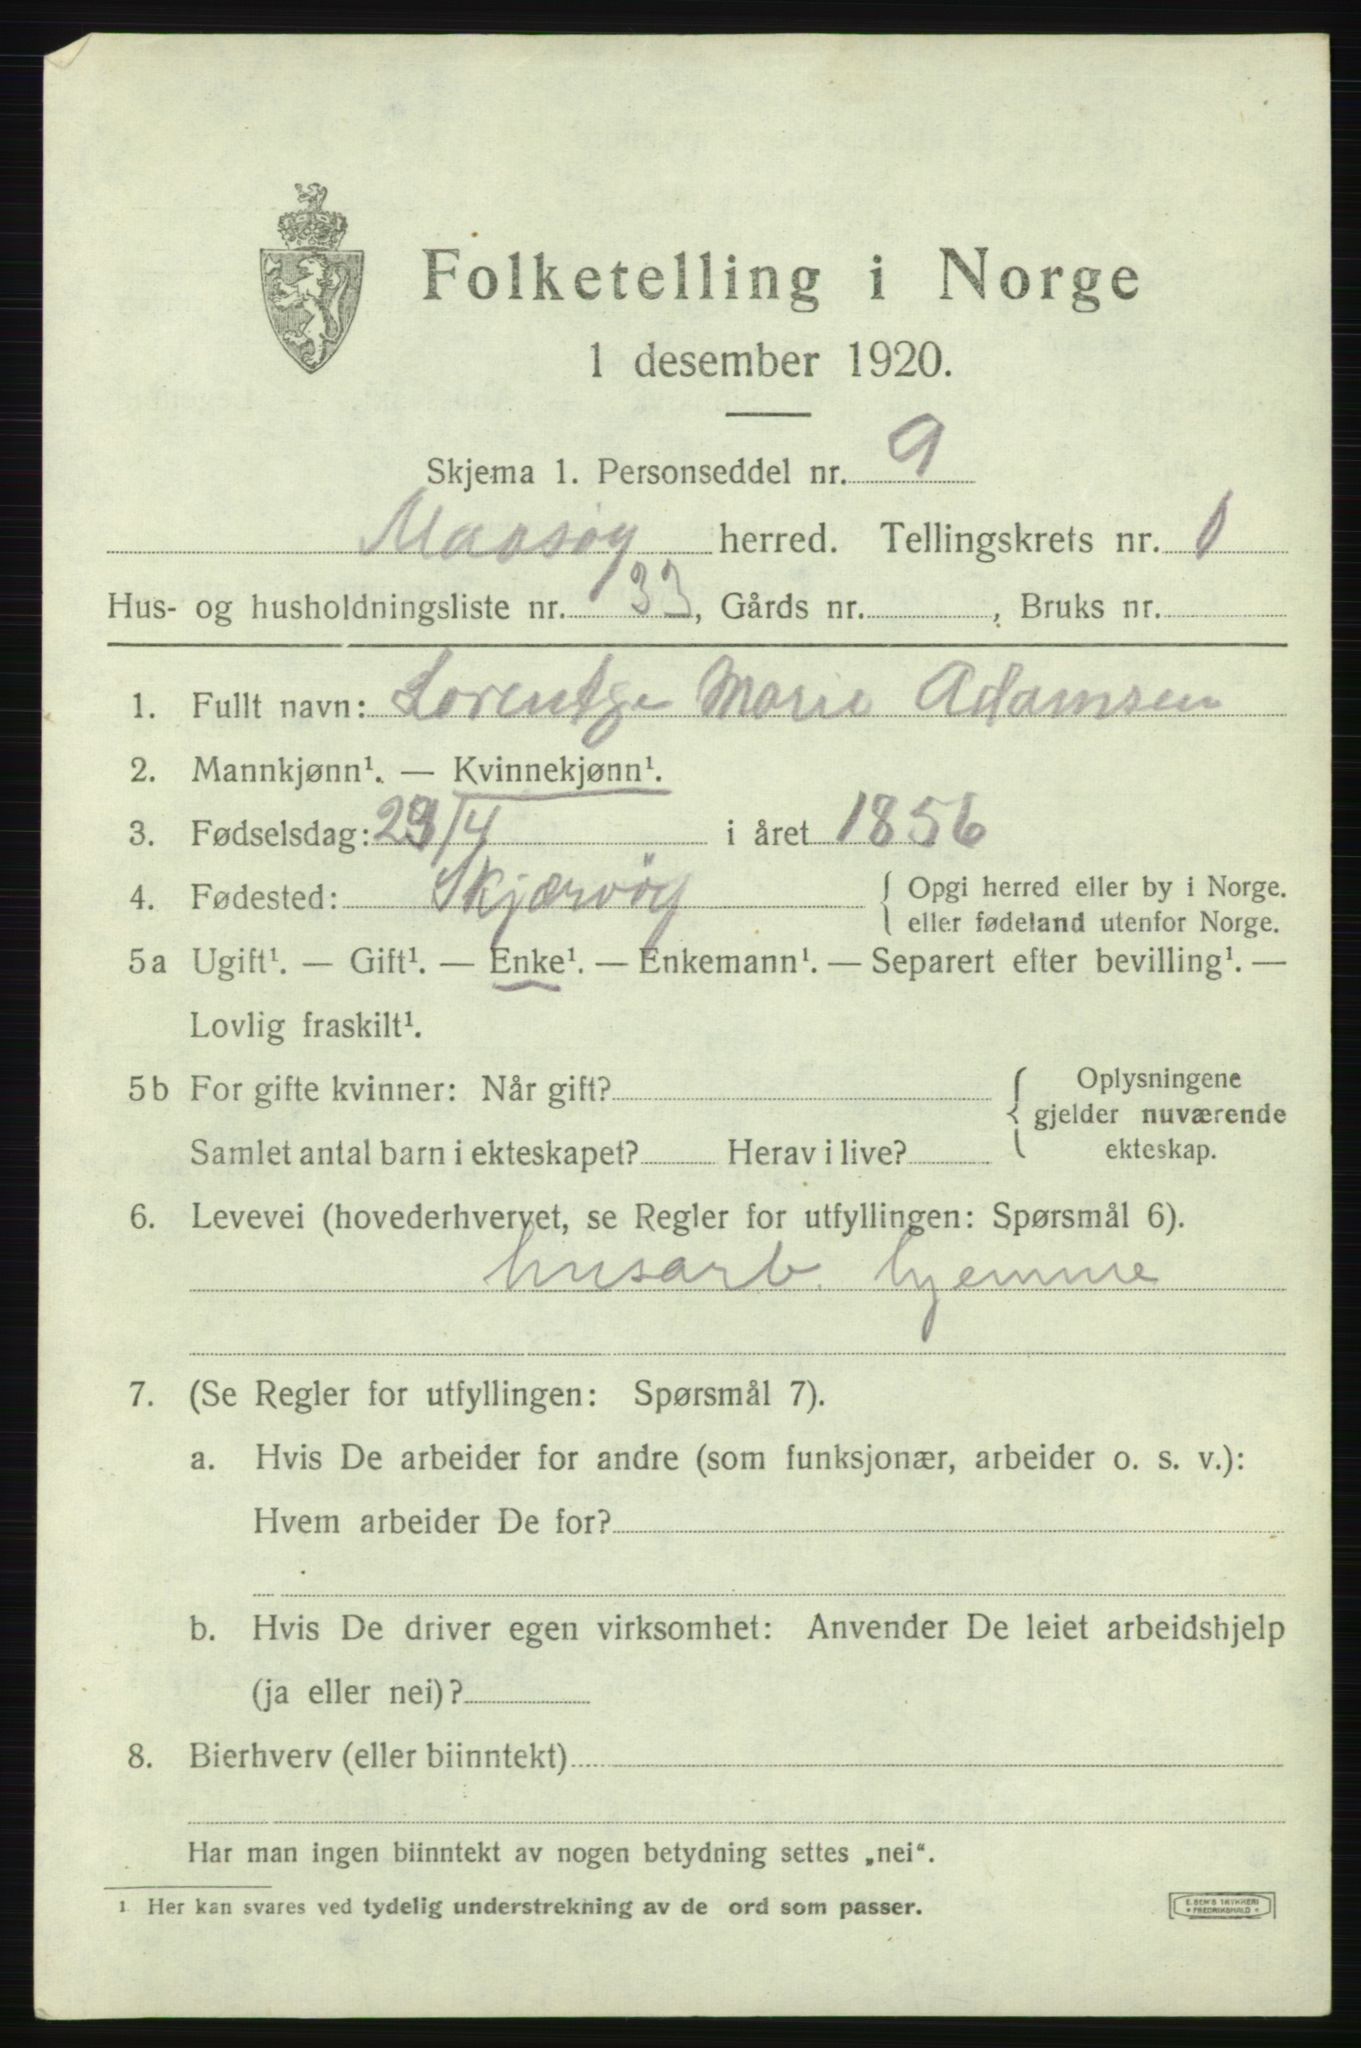 Folketelling i Norge
1 desember 1920.
Skjema 1. Personseddel nr. 9
Maasøy herred. Tellingskrets nr. 1
Hus- og husholdningsliste nr. 33, Gårds nr. , Bruks nr.
1. Fullt navn: Lorentge Marie Adamsen
2. Mannkjønn¹. — Kvinnekjønn¹.
3. Fødselsdag: 29/4 i året 1856
4. Fødested: Skjærvøy { Opgi herred eller by i Norge.
eller fødeland utenfor Norge.
5a Ugift¹. — Gift¹. — Enke¹. — Enkemann¹. — Separert efter bevilling¹. —
Lovlig fraskilt¹.
5b For gifte kvinner: Når gift? { Oplysningene
gjelder nuværende
Samlet antal barn i ekteskapet? Herav i live? ekteskap.
6. Levevei (hovederhvervet, se Regler for utfyllingen: Spørsmål 6).
husarb. hjemme
7. (Se Regler for utfyllingen: Spørsmål 7).
a. Hvis De arbeider for andre (som funksjonær, arbeider o. s. v.):
Hvem arbeider De for?
b. Hvis De driver egen virksomhet: Anvender De leiet arbeidshjelp
(ja eller nei)?
8. Bierhverv (eller biinntekt)
Har man ingen biinntekt av nogen betydning settes „nei“.
¹ Her kan svares ved tydelig understrekning av de ord som passer.
E. SEM'S TRYKKERI
FREDRIKSHALD